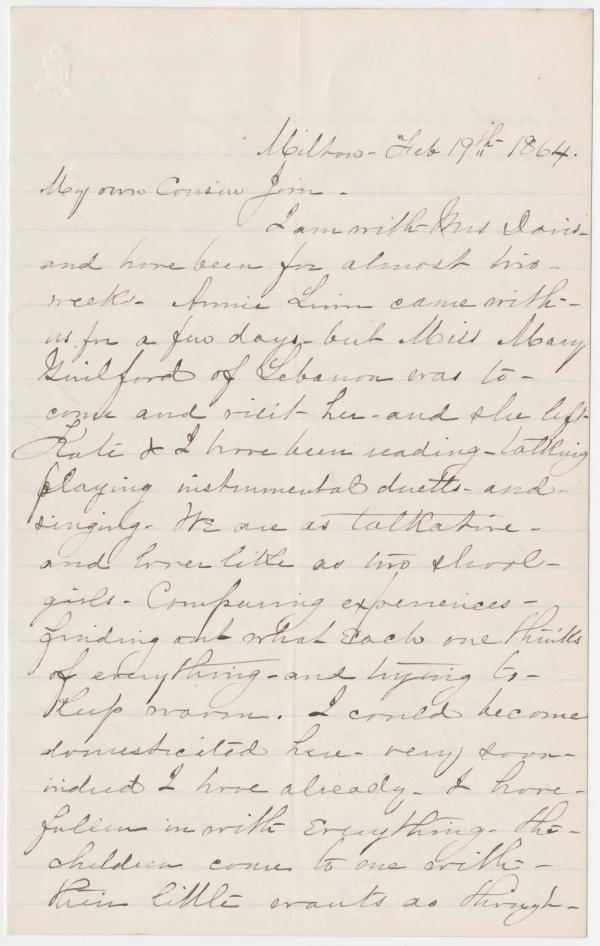 Milton - Feb 19th 1864.
My own Cousin Jim -
I am with Mrs Davis -
and have been for almost two -
weeks - Annie Linn came with -
us for a few days - but Miss Mary
Guilford of Lebanon was to -
come and visit her - and she left
Kate & I have been reading - talking
playing instrumental duetts - and -
singing - We are as talkative -
and lover like as two school -
girls - Comparing experiences -
finding out what each one thinks
of everything - and trying to -
keep warm. I could become
domesticated here - very soon -
indeed I have already - I have -
fallen in with everything - the -
children come to me with -
their little wants as though -